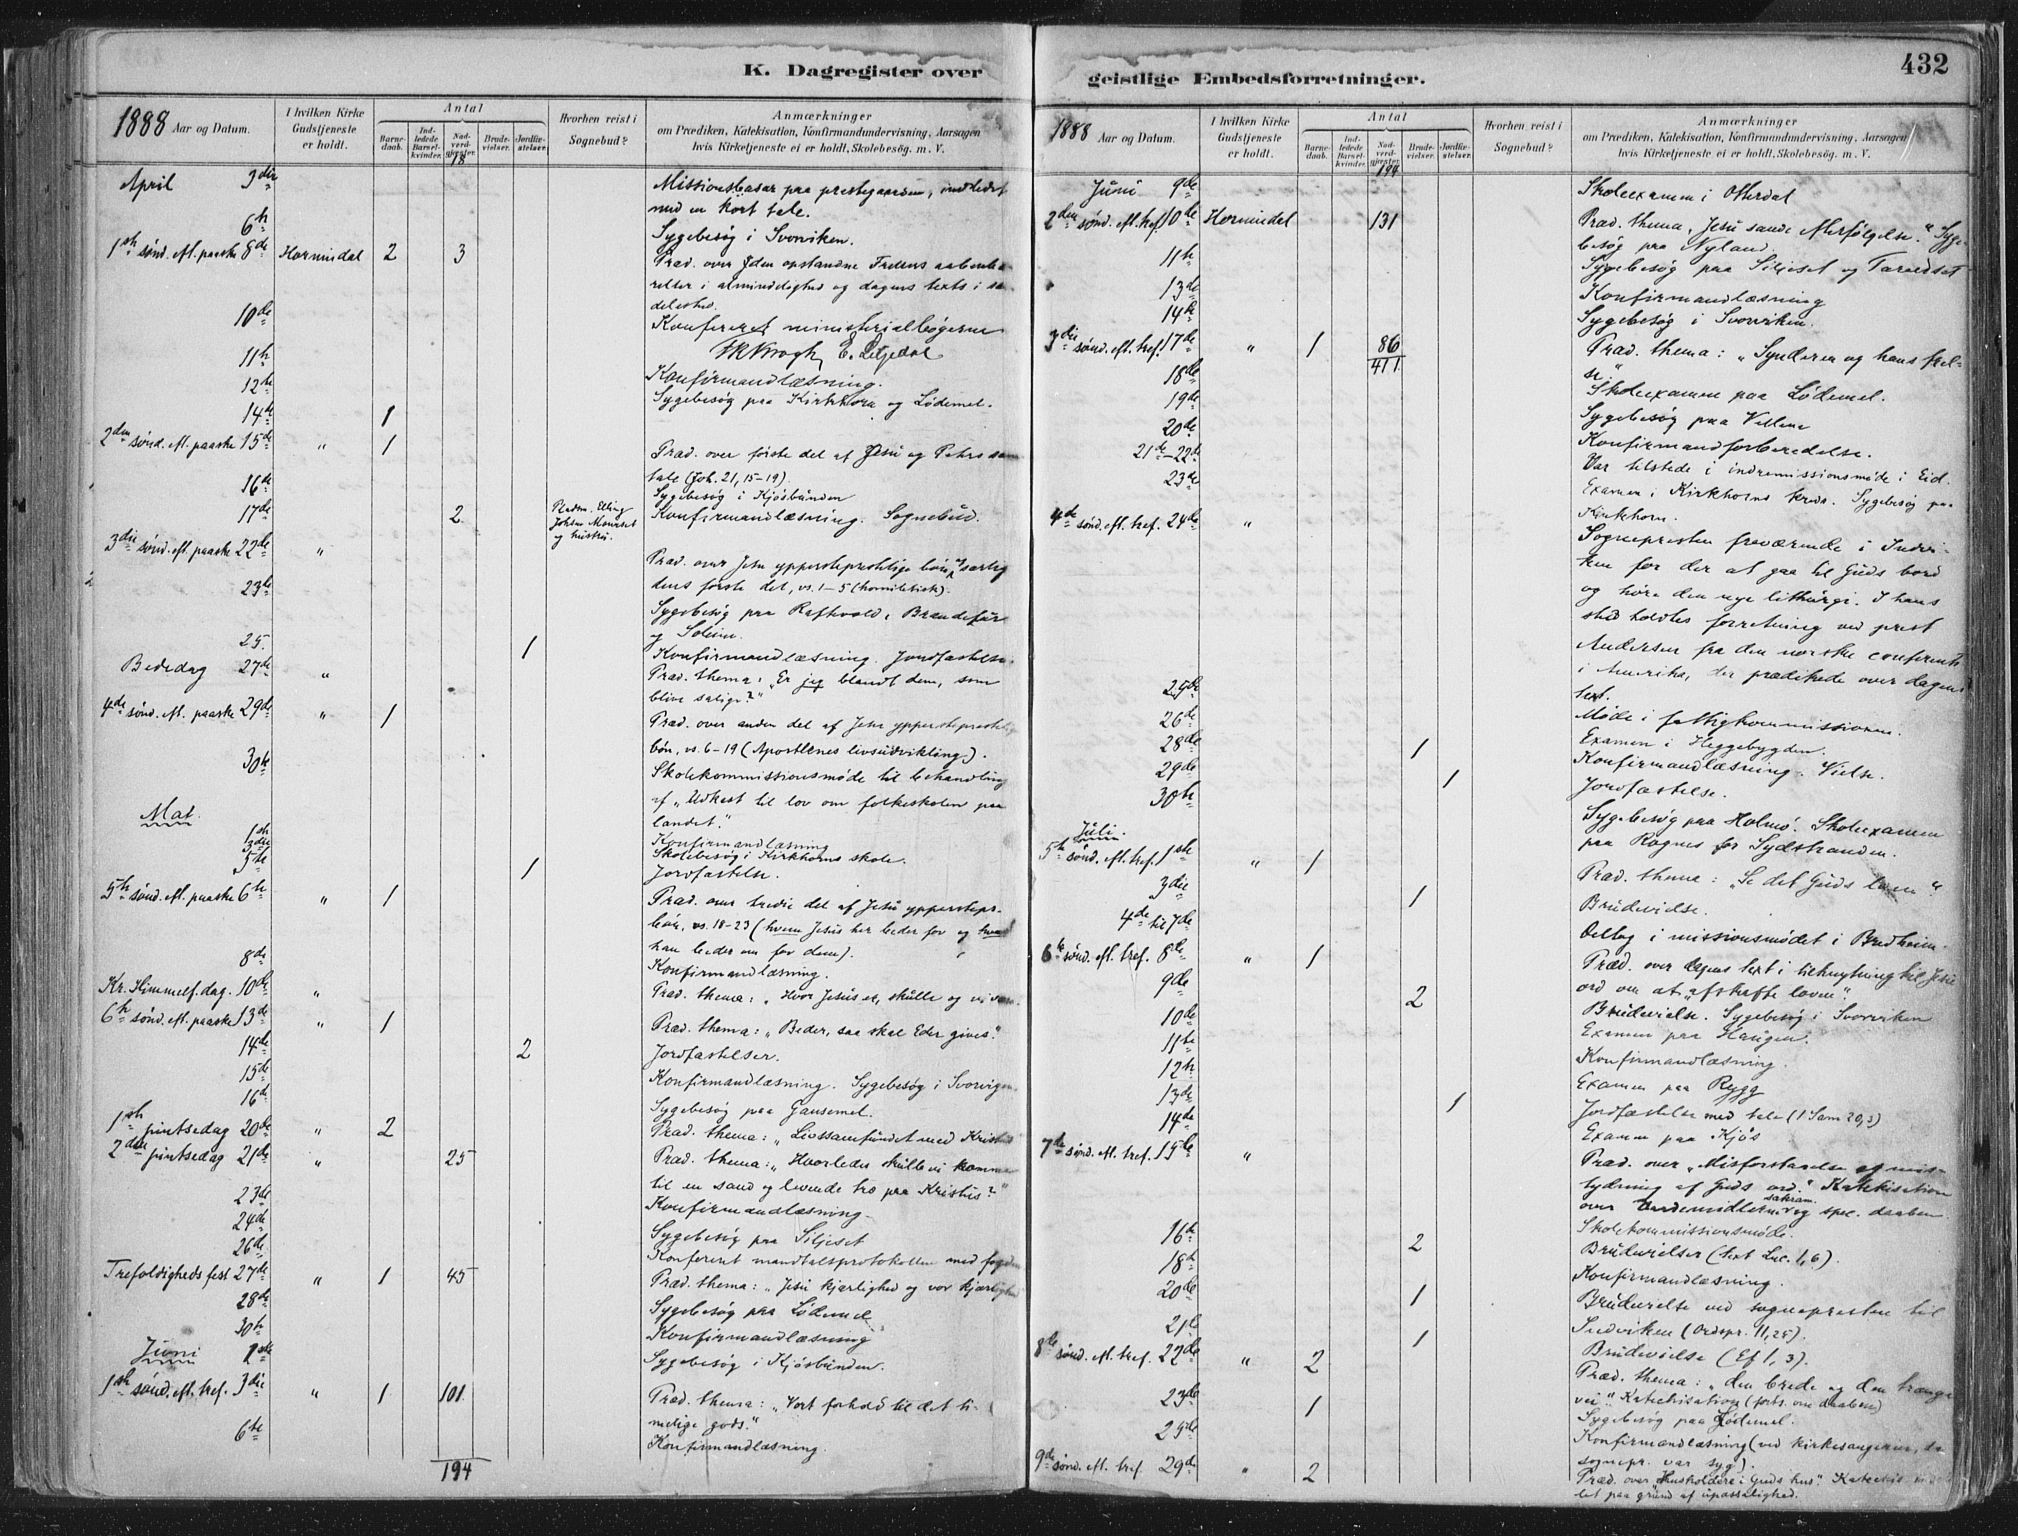 K. Dagregister over
1888 Aar og Datum.
I hvilken Kirke Gudstjeneste er holdt.
Antal
Barnedaab.
Indledede Barselkvinder.
Nadverdgjester.
Brudevielser.
Jordfæstelser.
Hvorhen reist i Sognebud?
Anmærkninger
om Prædiken, Katekisation, Konfirmandundervisning, Aarsagen
hvis Kirketjeneste ei er holdt, Skolebesøg. m. V.
18
April 3die Missionsbasar paa prestegaarden, indledet
med en kort tale.
6te Sygebesøg i Svoviken.
1ste sønd. eft. paaske 8de Hornindal 2 3 Præd. over den opstandne Frelsers aabenba-
relser i almindelighed og dagens texts i sa-
deleshed.
10de Konfereret ministerialbøgerne
11te Konfirmandlæsning.
12te Sygebesøg paa Kirkhorn og Lødemel.
14de 1
2den sønd. eft. paaske 15de " 1 Præd. over første del af Jesu og Peters sam
tale (Joh. 21, 15-19).
16de Sygebesøg i Kjøsbunden
17de 2 og hustru. Konfirmandlæsning. Sognebud.
3die sønd. eft. paaske 22de " Præd. over Jesu ypperstepræstelige bøn, særlig
dens første del, vs. 1-5 (homiletisk).
23de Sygebesøg paa Raftevold, Brandefur
og Soleim.
25. 1 Konfirmandlæsning. Jordfæstelse.
Bededag 27de " Præd. thema: "Er jeg blandt dem, som
blive salige?"
4de sønd. eft. paaske 29de " 1 Præd. over anden del af Jesu ypperstepræstelig
bøn, vs. 6-19 (Apostlenes livsudvikling).
30te Skolekommissionsmøde til behandling
af "Udkast til lov om folkeskolen paa
landet."
Mai.
1ste Konfirmandlæsning
3die Skolebesøg i Kirkhorns skole.
5te 1 Jordfæstelse.
5te sønd. eft. paaske 6te " 1 Præd. over tredie del af Jesu yppersteprs.
bøn, vs. 18-23 (hvem Jesus her beder for og hvad
han beder om for dem).
8de Konfirmandlæsning.
Kr. Himmelf. dag. 10de " Præd. thema: "Hvor Jesus er, skulle og vi være
6te sønd. eft. paaske 13de " 1 Præd. thema: "Beder, saa skal Eder gives."
14de 2 Jordfæstelser.
15de Konfirmandlæsning. Sygebesøg i Svorvigen.
16de Sygebesøg paa Gausemel.
1ste pintsedag 20de " 2 Præd. thema: "Livssamfundet med Kristus
2den pintsedag 21de " 25 Præd. thema: "Hvorledes skulle vi komme
til en sand og levende tro paa Kristus?"
23de Konfirmandlæsning.
24de Sygebesøg paa Siljeset
26de Konfereret mandtalsprotokollen med fogden
Trefoldigheds fest 27de " 1 45 Præd. thema: "Jesu kjærlighed og vor kjærlighed
28de Sygebesøg paa Lødemel
30te Konfirmandlæsning
Juni 1ste Sygebesøg i Kjøsbunden.
1ste sønd. eft. tref. 3die " 1 101 Præd. thema: "Vort forhold til det ti-
melige gods."
6te Konfirmandlæsning.
194
geistlige Embedsforretninger.
432
1888 Aar og Datum.
I hvilken Kirke Gudstjeneste er holdt.
Antal
Barnedaab.
Indledede Barselkvinder.
Nadverdgjester.
Brudevielser.
Jordfæstelser.
Hvorhen reist i Sognebud?
Anmærkninger
om Prædiken, Katekisation, Konfirmandundervisning, Aarsagen
hvis Kirketjeneste ei er holdt, Skolebesøg. m. V.
194
Juni 9de Skoleexamen i Otterdal
2den sønd. eft. tref. 10de Hornindal 131 Præd. thema "Jesu sande Efterfølgelse." Syge-
besøg paa Nyland.
11te Sygebesøg paa Siljeset og Tarvedset
13de Konfirmandlæsning
14de Sygebesøg i Svorviken.
3die sønd. eft. tref. 17de " 1 86 Præd. thema: "Synderen og hans frel-
se."
411
18de Skoleexamen paa Lødemel.
19de Sygebesøg paa Vellene
20de Konfirmandforberedelse.
21de-22de Var tilstede i indremissionsmøde i Eid.
23de Examen i Kirkhorns kreds. Sygebesøg paa
Kirkhorn.
4de sønd. eft. tref. 24de " Sognepresten fraværende i Indvi-
ken for der at gaa til Guds bord
og høre den nye lithurgi. I hans
sted holdtes forretning ved prest
Andersen fra den norske conferents
i Amerika, der prædikede over dagens
text.
25de Møde i fattigkommissionen.
26de Examen i Heggebygden.
28de 1 Konfirmandlæsning. Vielse.
29de 1 Jordfæstelse.
30te Sygebesøg paa Holmø. Skoleexamen
paa Rognes for Sydstranden.
Juli.
5te sønd. eft. tref. 1ste " 1 Præd. thema: "Se det Guds lam"
3die 1 Brudevielse.
4de til 7de Deltog i missionsmødet i Bredheim.
6te sønd. eft. tref. 8de " 1 Præd. over dagens text i tilknytning til Jesu
ord om at "afskaffe loven".
9de 2 Brudevielse. Sygebesøg i Svorviken
10de Examen paa Haugen.
11te Konfirmandlæsning.
12te Examen paa Rygg
13de 1 Jordfæstelse med tale (1 Sam 20,3)
14de Examen paa Kjøs
7de sønd. eft. tref. 15de " Præd. over "Misforstaaelse og mis-
tydning af Guds ord." Katekisation
over sakram. og spec. daaben
16de Skolekommissionsmøde.
2 Brudevielser (text Luc. 1,6).
18de Konfirmandlæsning.
20de 1 Brudevielse ved sognepresten til
Indviken (Ordspr. 11,25).
21de 1 Brudevielse (Ef 1,3).
8de sønd. eft. tref. 22de " 2 Præd. thema: "den brede og den trange
vei." Katechisation (forts. om daaben)
23de 1 Sygebesøg paa Lødemel.
25de Konfirmandlæsning (ved kirkesangeren, da
sognepr. var syg).
9de sønd. eft. tref. 29de " 2 Præd. over "Husholdere i Guds hus." Katechis.
let paa grund af upasselighed.